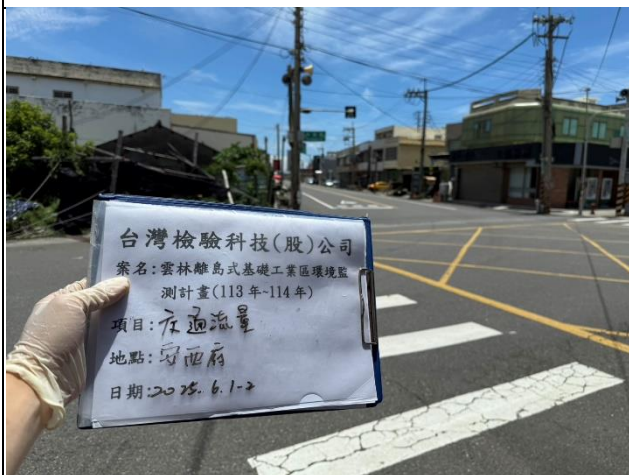 台灣檢驗科技(股)公司
案名:雲林離島式基礎工業區環境監
測計畫(113年~114年)
項目:交通流量
地點:安西府
日期:2025.6.1-2